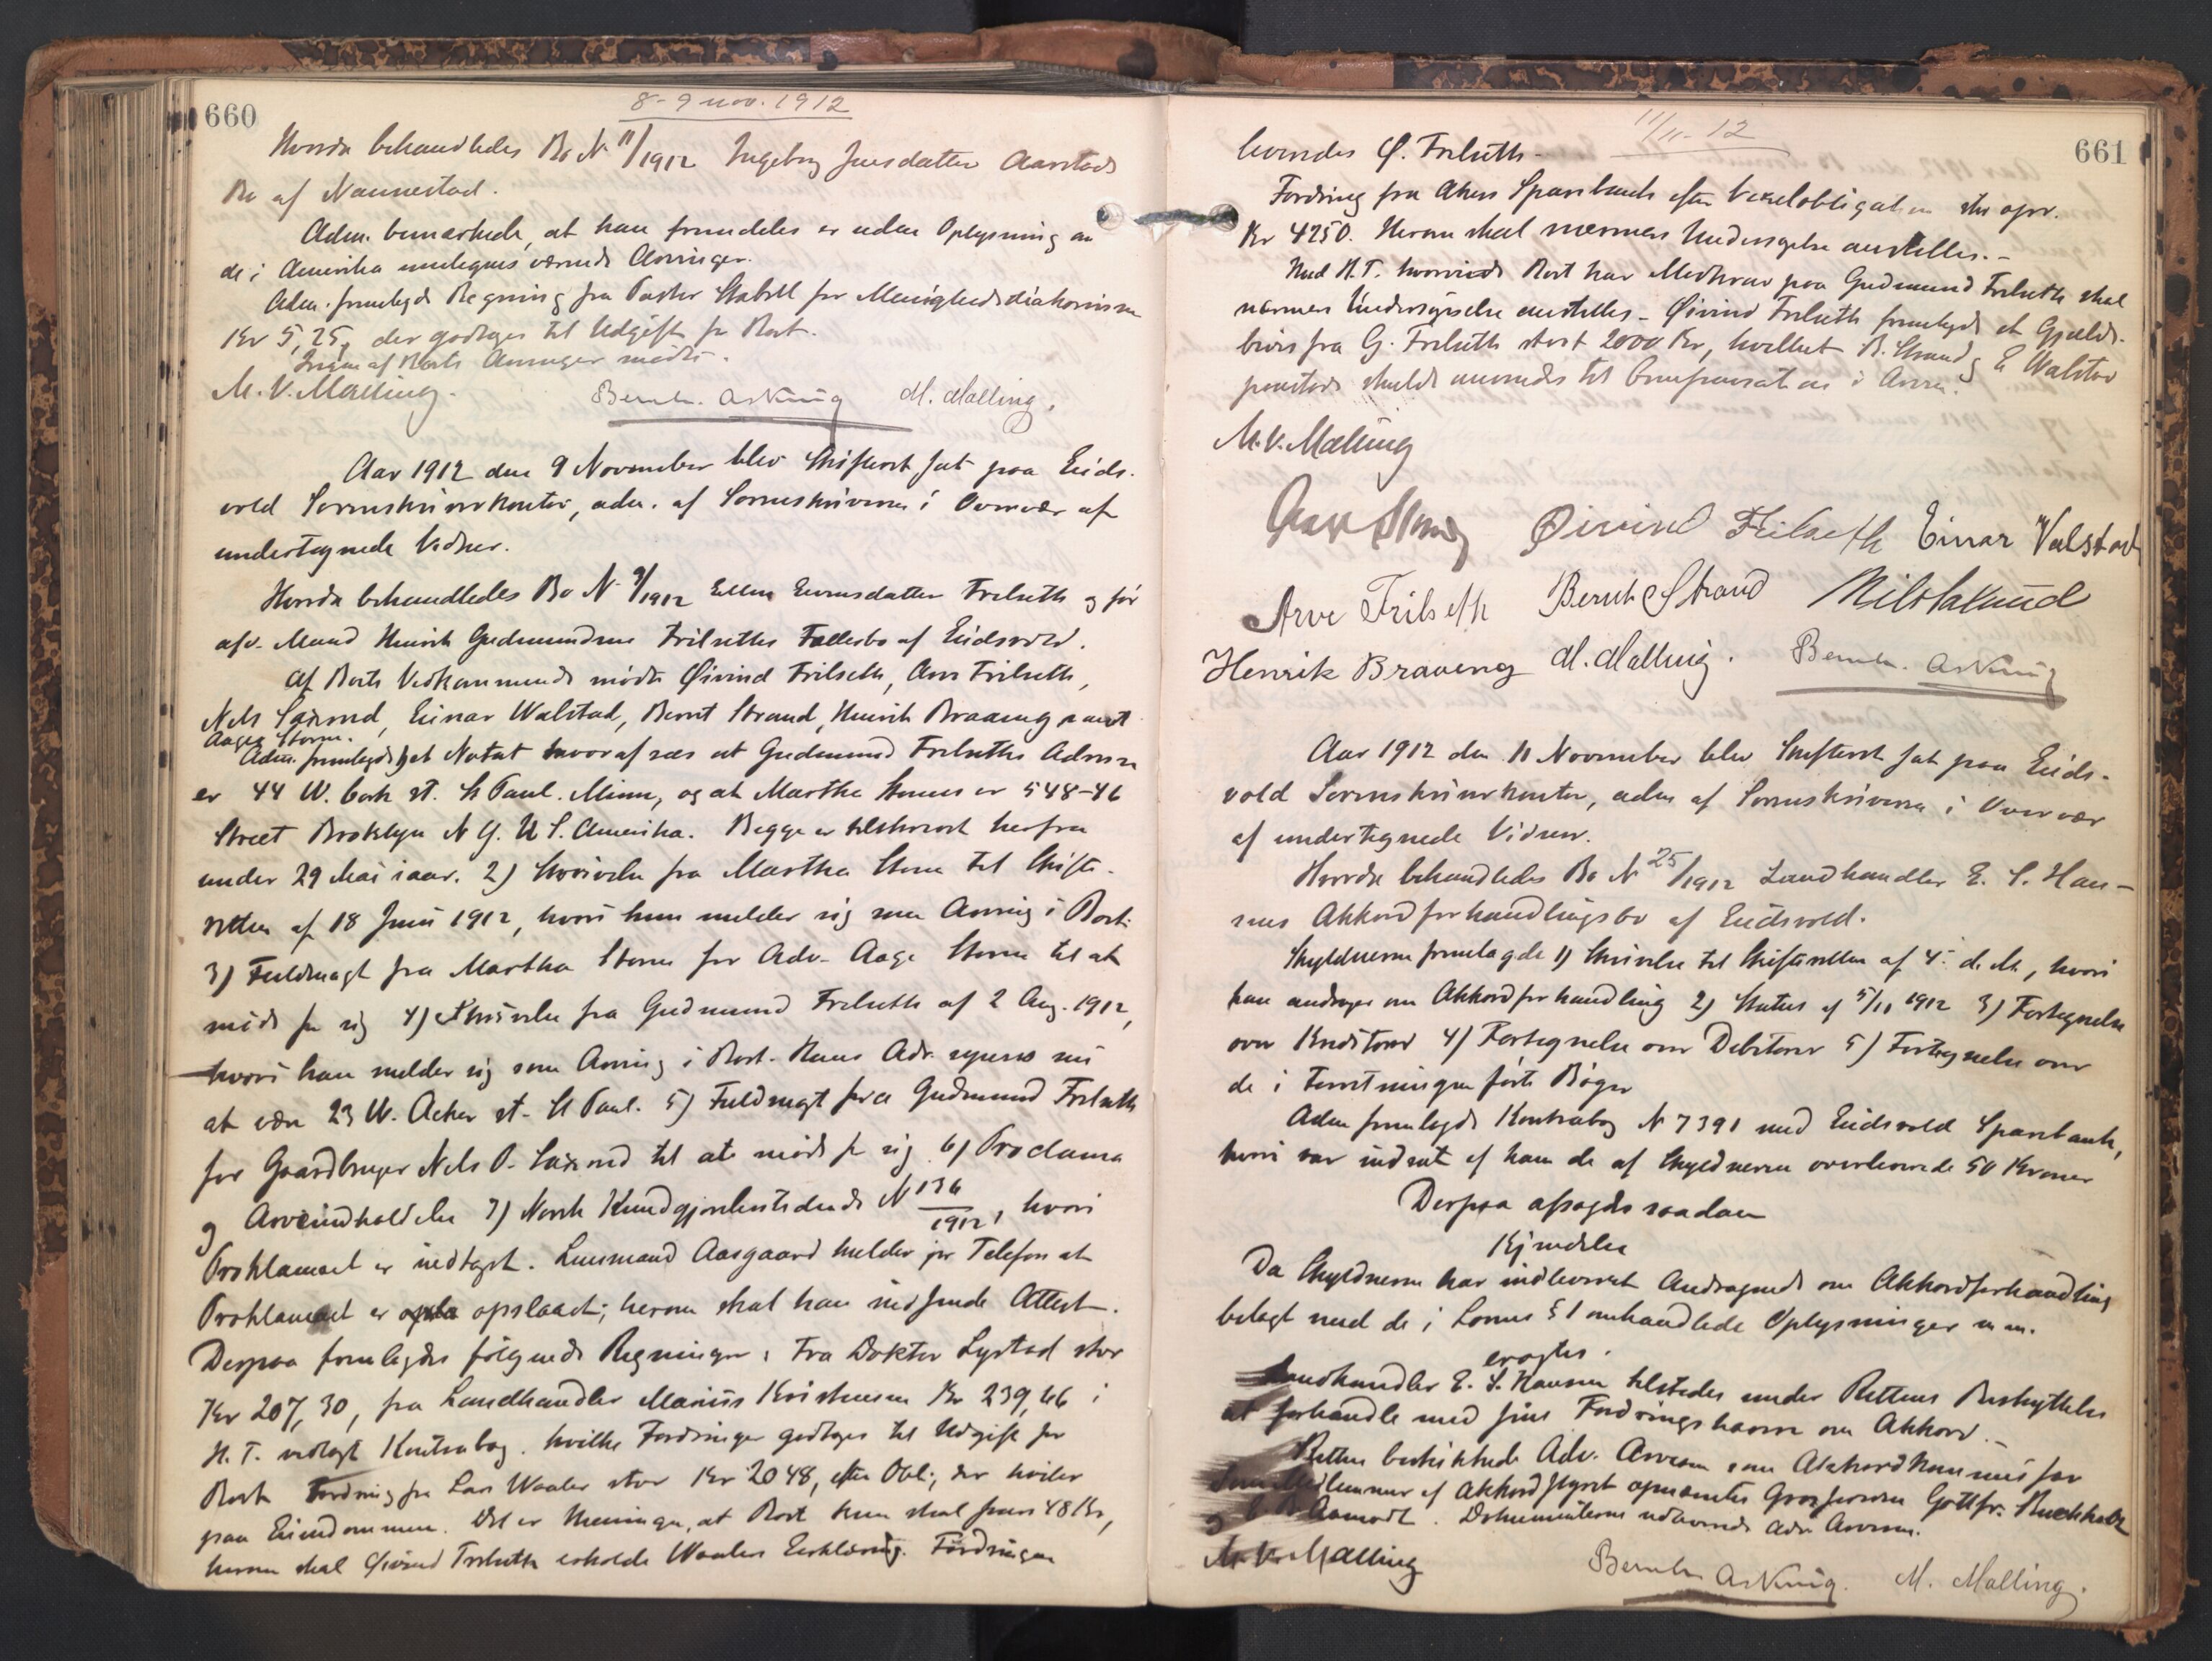 660
8-9 nov. 1912
Herunder behandledes Bo N 11/1912 Ingeborg Jensdatter Aarstads
Bo af Nannestad.
Adm. bemærkede, at han fremdeles er uden Oplysning om
de i Amerika værende Arvinger.
Adm. fremlagde Regning fra Pastor Stabell for Menighedsdiakonissen
Kr 5,25, der godtages til Udgift for Boet.
Ingen af Boets Arvinger mødte.
M. V. Malling. Bernh. Askning M. Malling.
Aar 1912 den 9 November blev Skifteret sat paa Eids-
vold Sorenskriverkontor, adm. af Sorenskriveren i Overvær af
undertegnede Vidner.
Hvorda behandledes Bo N 9/1912 Ellen Evensdatter Frilseth og før
afd. Mand Henrik Gudmundsen Frilseths Fællesbo af Eidsvold.
Af Boets Vedkommende mødte Øivind Frilseth, Arve Frilseth,
Nels Saxrud, Einar Walstad, Bernt Strand, Henrik Braaeng samt
Aage Storm.
Adm. fremlagde 1) et Notat hvoraf sees at Gudmund Frilseths Adresse
er 44 W. Cook st. St Paul. Minn, og at Martha Storms er 548-46
Street Brooklyn N Y. U S. Amerika. Begge er tilskrevet herfra
under 29 Mai iaar. 2) Skrivelse fra Martha Storm til Skifte-
retten af 18 Juni 1912, hvori hun melder sig som Arving i Boet.
3) Fuldmagt fra Martha Storm for Adv. Aage Storm til at
møde for sig 4) Skrivelse fra Gudmund Frilseth af 2 Aug. 1912,
hvori han melder sig som Arving i Boet. Hans Adr. opgives nu
at være 23 W. Acker st. St Paul. 5) Fuldmagt fra Gudmund Frilseth
for Gaardbruger Nels O. Saxrud til at møde for sig 6) Proclama
og Arveindkaldelse 7) Norsk Kundgjørelsestidende N 136/1912, hvori
Proklamaet er indtaget. Lensmand Aasgaard melder pr Telefon at
Proklamaet er opslaaet; herom skal han indsende Attest.
Derpaa fremlagdes følgende Regninger: Fra Doktor Lystad stor
Kr 207,30, fra Landhandler Marius Kristensen Kr 239,66 i
H. T. vedlagt Kontrabog. hvilke Fordringer godtages til Udgift for
Boet. Fordring fra Lars Waaler stor Kr 2048, efter Obl.; der hviler
paa Eiendommen. Det er Meningen, at Boet kun skal svare 48 Kr,
herom skal Øivind Frilseth erholde Waalers Erklæring. Fordringen
11/11-12
661
Ø. Frilseth.
Fordring fra Akers Sparebank efter Vexelobligation stor opr.
Kr 4250. Herom skal nærmere Undersøgelse anstilles.-
Med H.T. hvorvidt Boet har Medkrav paa Gudmund Frilseth skal
nærmere Undersøgelse anstilles - Øivind Frilseth fremlagde et Gjælds-
bevis fra G. Frilseth stort 2000 Kr, hvilket B. Strand og E Walstad
paastod skulde anvendes til Compensation i Arven.
M. V. Malling
Aage Storm Øivind Frilseth Einar Valstad
Arve Frilseth Bernt Strand Nils Saxrud
Henrik Braaeng M. Malling. Bernh. Askning
Aar 1912 den 11 November blev Skifteret sat paa Eids-
vold Sorenskriverkontor, adm. af Sorenskriveren i Overvær
af undertegnede Vidner.
Hvorda behandledes Bo N 25/1912 Landhandler E. S. Han-
sens Akkordforhandlingsbo af Eidsvold.
Skyldneren fremlagde 1) Skrivelse til Skifteretten af 4. d. M., hvori
han andrager om Akkordforhandling 2) Status af 5/11 1912 3) Fortegnelse
over Kreditorer 4) Fortegnelse over Debitorer 5) Fortegnelse over
de i Forretningen førte Bøger
Adm fremlagde Kontrabog N 7391 med Eidsvold Sparebank,
hvori var indsat af ham de af Skyldneren overleverede 50 Kroner
Derpaa afsagdes saadan
Kjendelse
Da Skyldneren har indleveret Andragende om Akkordforhandling
belagt med de i Lovens § 1 omhandlede Oplysninger m.m.
eragtes.
Landhandler E. S. Hansen tilstedes under Rettens Beskyttelse
at forhandle med sine Fordringshavere om Akkord.-
Retten beskikkede Adv. Arvesen som Akkordkommissær
Som Medlemmer af Akkordstyret opnævntes Grosserer Gottfr. Buchholz
og Aamodt. Dokumenterne udleverede Adv. Arvesen.
M. V. Malling Bernh. Askning. M. Malling.